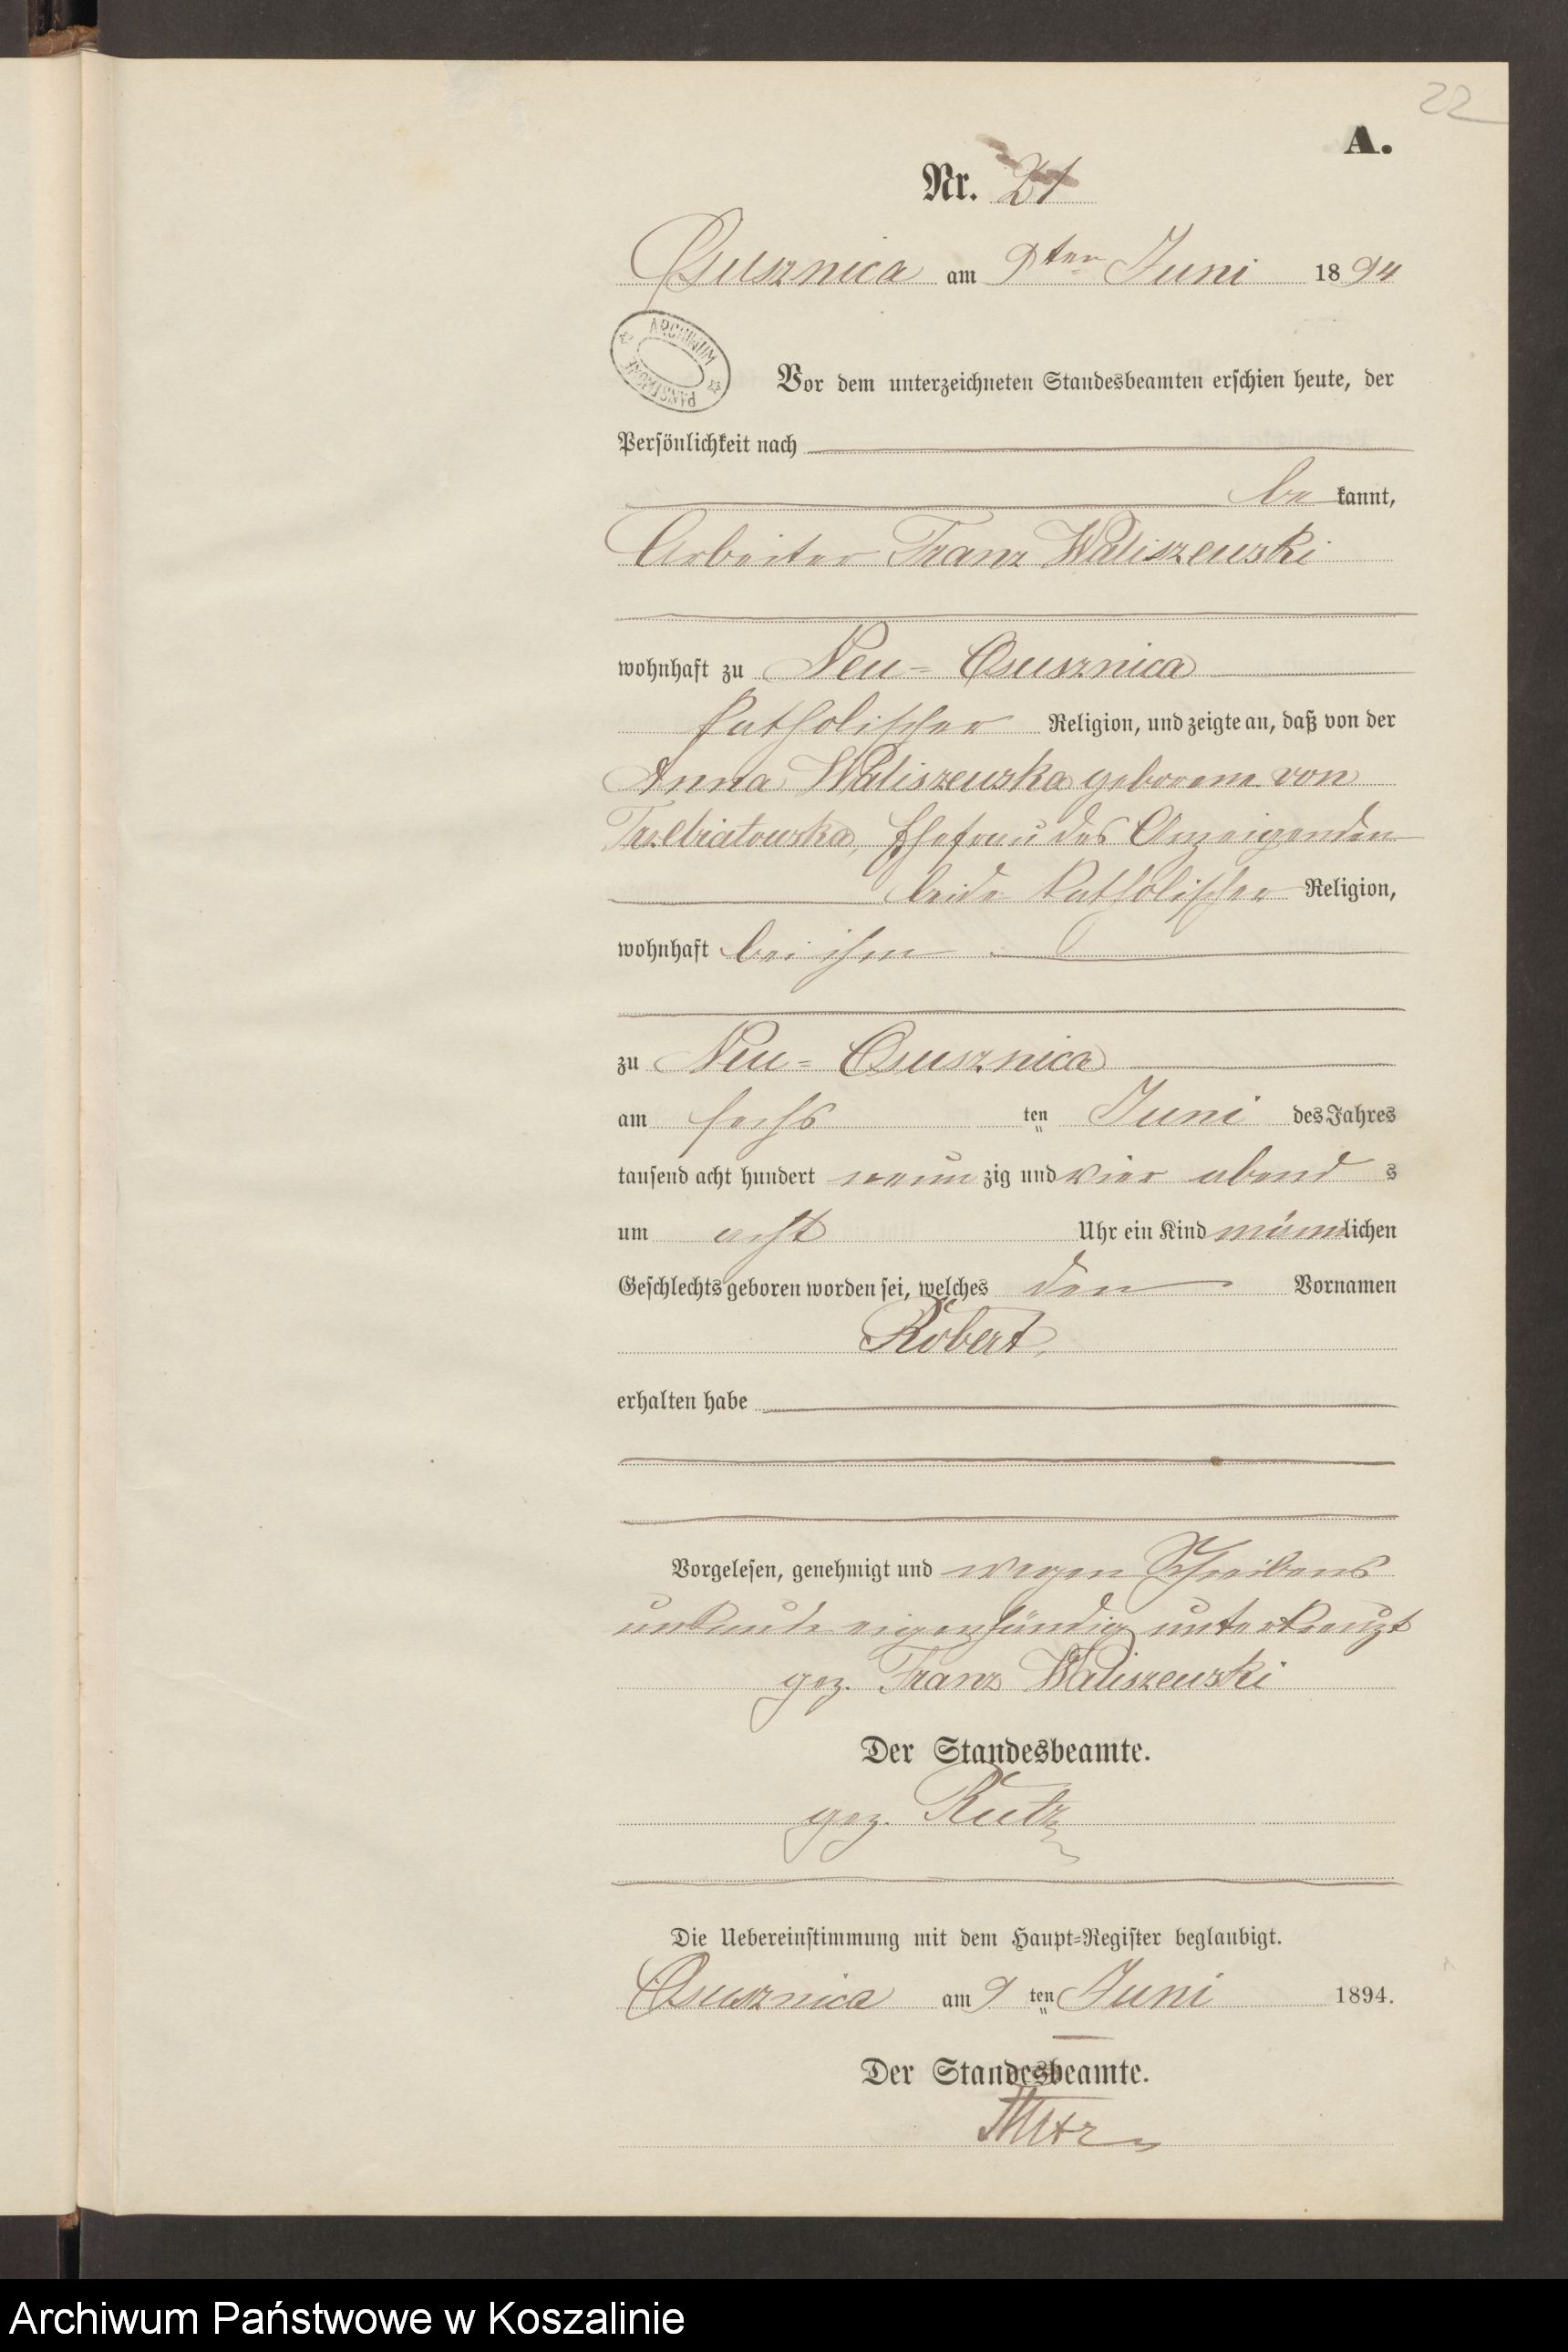 22
A.
Nr. 21
Osusznica am 9ten Juni 1894
ARCHIWUM PAŃSTWOWE
Vor dem unterzeichneten Standesbeamten erschien heute, der
Persönlichkeit nach
be kannt,
Arbeiter Franz Waliszewski
wohnhaft zu Neu-Osusznica
katholischer Religion, und zeigte an, daß von der
Anna Waliszewska geborene von
Trzebiatowska, Ehefrau des Anzeigenden
beide katholischer Religion,
wohnhaft bei ihm
zu Neu-Osusznica
am sechs ten Juni des Jahres
tausend acht hundert neun zig und vier abend s
um acht Uhr ein Kind männlichen
Geschlechts geboren worden sei, welches den Vornamen
Robert,
erhalten habe
Vorgelesen, genehmigt und wegen Schreibens
unkunde eigenhändig unterkreuzt
gez. Franz Waliszewski
Der Standesbeamte.
gez. Rutz
Die Uebereinstimmung mit dem Haupt-Register beglaubigt.
Osusznica am 9 ten Juni 1894.
Der Standesbeamte.
Archiwum Państwowe w Koszalinie